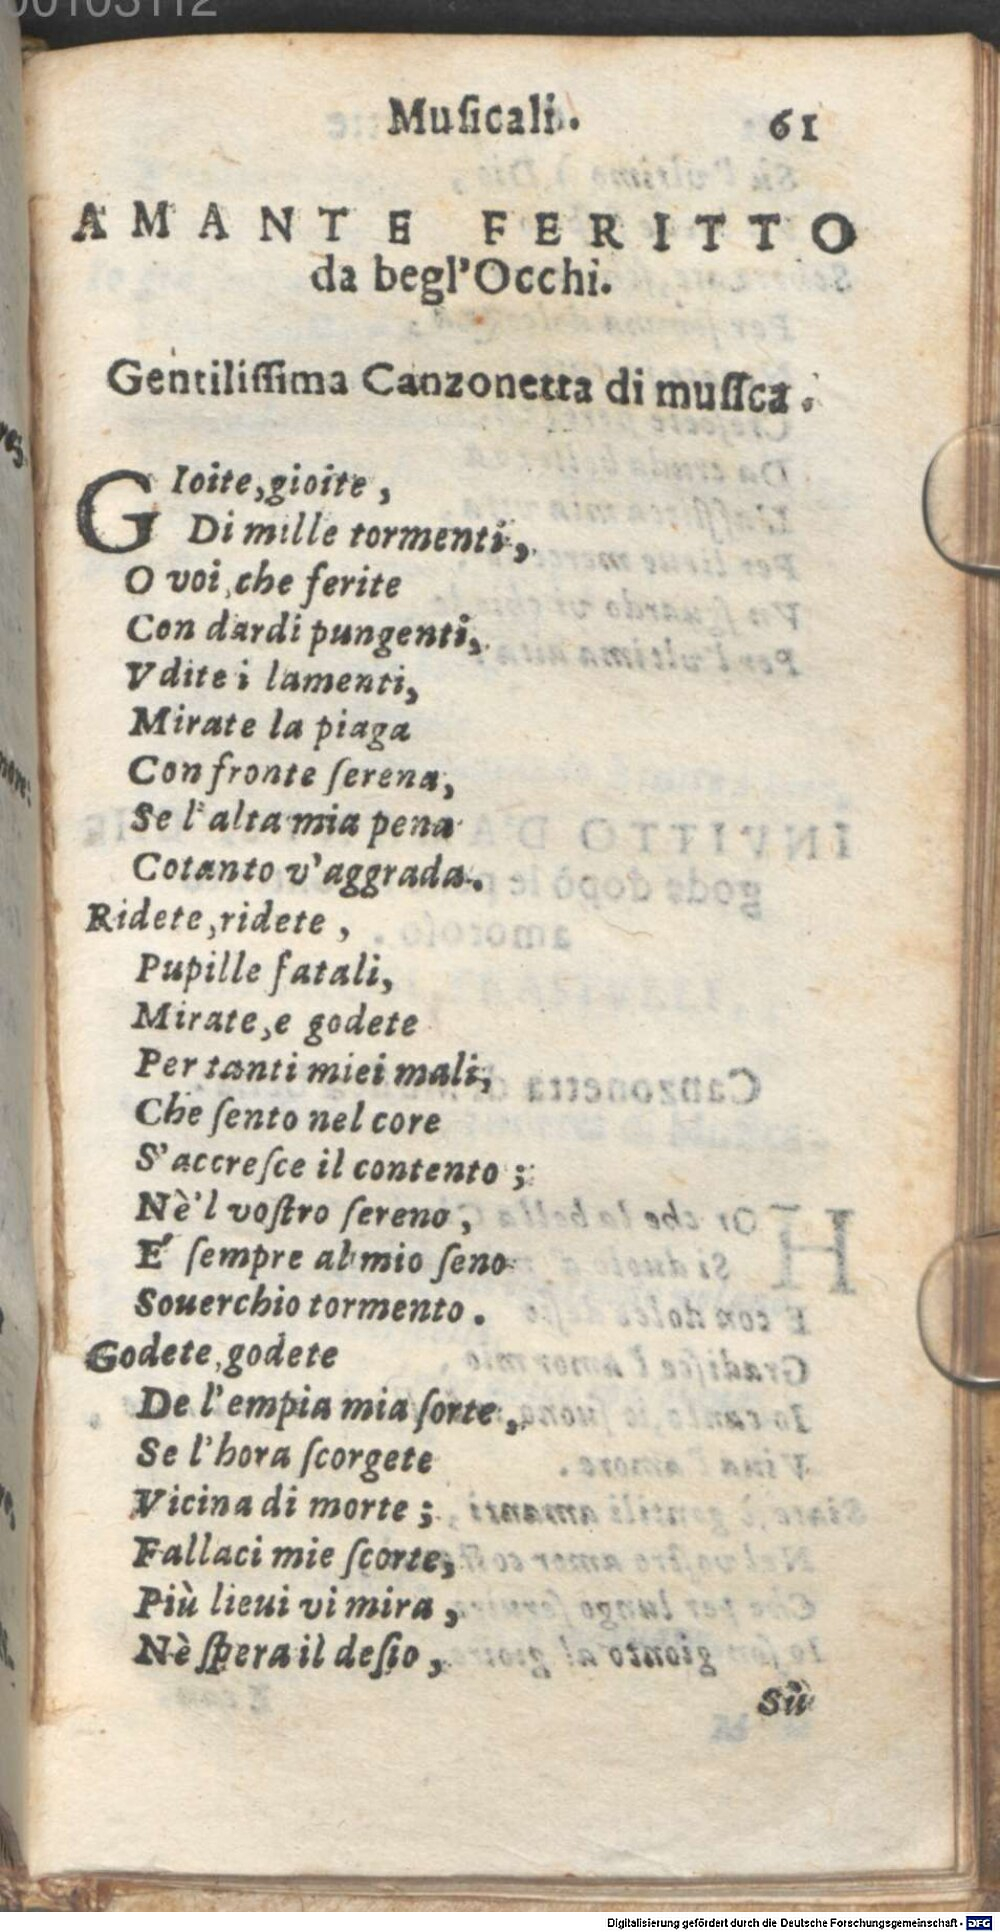 00103112
Muſicali. 61
AMANTE FERITTO
da begl'Occhi.
Gentiliſſima Canzonetta di muſica.
GIoite, gioite,
Di mille tormenti,
O voi, che ferite
Con dardi pungenti,
Vdite i lamenti,
Mirate la piaga
Con fronte ſerena,
Se l'alta mia pena
Cotanto v'aggrada.
Ridete, ridete,
Pupille fatali,
Mirate, e godete
Per tanti miei mali,
Che ſento nel core
S'accreſce il contento;
Nè'l voſtro ſereno,
E' ſempre al mio ſeno
Souerchio tormento.
Godete, godete
De l'empia mia ſorte,
Se l'hora ſcorgete
Vicina di morte;
Fallaci mie ſcorte,
Più lieui vi mira,
Nè ſpera il deſio,
Sù
Digitalisierung gefördert durch die Deutsche Forschungsgemeinschaft - DFG